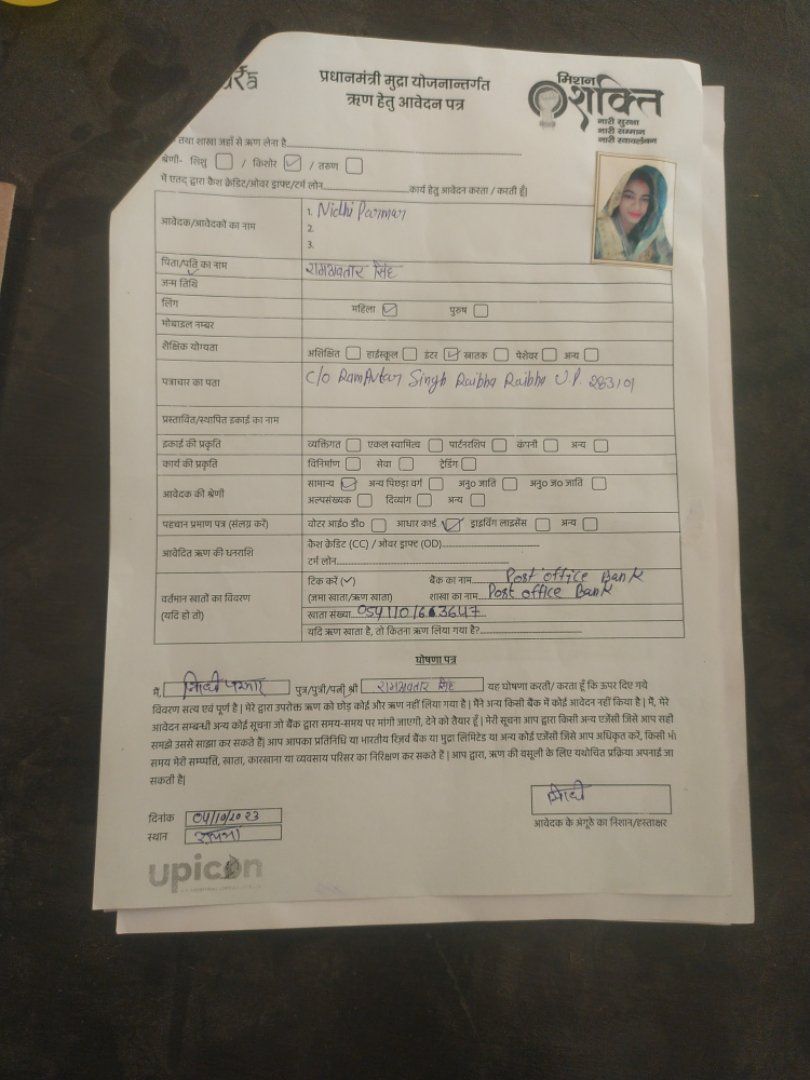 प्रधानमंत्री मुद्रा योजनान्तर्गत
ऋण हेतु आवेदन पत्र
मिशन
शक्ति
नारी सुरक्षा
नारी सम्मान
नारी स्वावलंबन
तथा शाखा जहाँ से ऋण लेना है
श्रेणी- शिशु / किशोर / तरुण
में एतद् द्वारा कैश क्रेडिट/ओवर ड्राफ्ट/टर्म लोन कार्य हेतु आवेदन करता / करती हूँ।
आवेदक/आवेदकों का नाम
1. Nidhi Parmar
2.
3.
पिता/पति का नाम रामअवतार सिंह
जन्म तिथि
लिंग महिला पुरुष
मोबाइल नम्बर
शैक्षिक योग्यता अशिक्षित हाईस्कूल इंटर स्नातक पेशेवर अन्य
पत्राचार का पता C/o RamAvtar Singh Raibha Raibha U.P. 283101
प्रस्तावित/स्थापित इकाई का नाम
इकाई की प्रकृति व्यक्तिगत एकल स्वामित्व पार्टनरशिप कंपनी अन्य
कार्य की प्रकृति विनिर्माण सेवा ट्रेडिंग
आवेदक की श्रेणी सामान्य अन्य पिछड़ा वर्ग अनु० जाति अनु० ज० जाति
अल्पसंख्यक दिव्यांग अन्य
पहचान प्रमाण पत्र (संलग्न करें) वोटर आई० डी० आधार कार्ड ड्राइविंग लाइसेंस अन्य
आवेदित ऋण की धनराशि कैश क्रेडिट (CC) / ओवर ड्राफ्ट (OD)
टर्म लोन
वर्तमान खातों का विवरण
(यदि हो तो)
टिक करें (✓) बैंक का नाम Post office Bank
(जमा खाता/ऋण खाता) शाखा का नाम Post office Bank
खाता संख्या
यदि ऋण खाता है, तो कितना ऋण लिया गया है?
घोषणा पत्र
मैं, निधी परमार पुत्र/पुत्री/पत्नी श्री रामअवतार सिंह यह घोषणा करती/ करता हूँ कि ऊपर दिए गये
विवरण सत्य एवं पूर्ण है | मेरे द्वारा उपरोक्त ऋण को छोड़ कोई और ऋण नहीं लिया गया है | मैंने अन्य किसी बैंक में कोई आवेदन नहीं किया है | मैं, मेरे
आवेदन सम्बन्धी अन्य कोई सूचना जो बैंक द्वारा समय-समय पर मांगी जाएगी, देने को तैयार हूँ | मेरी सूचना आप द्वारा किसी अन्य एजेंसी जिसे आप सही
समझे उससे साझा कर सकते हैं| आप आपका प्रतिनिधि या भारतीय रिज़र्व बैंक या मुद्रा लिमिटेड या अन्य कोई एजेंसी जिसे आप अधिकृत करें, किसी भी
समय मेरी सम्पत्ति, खाता, कारखाना या व्यवसाय परिसर का निरिक्षण कर सकते है | आप द्वारा, ऋण की वसूली के लिए यथोचित प्रक्रिया अपनाई जा
सकती है|
निधी
आवेदक के अंगूठे का निशान/हस्ताक्षर
दिनांक 04/10/2023
स्थान
upicon